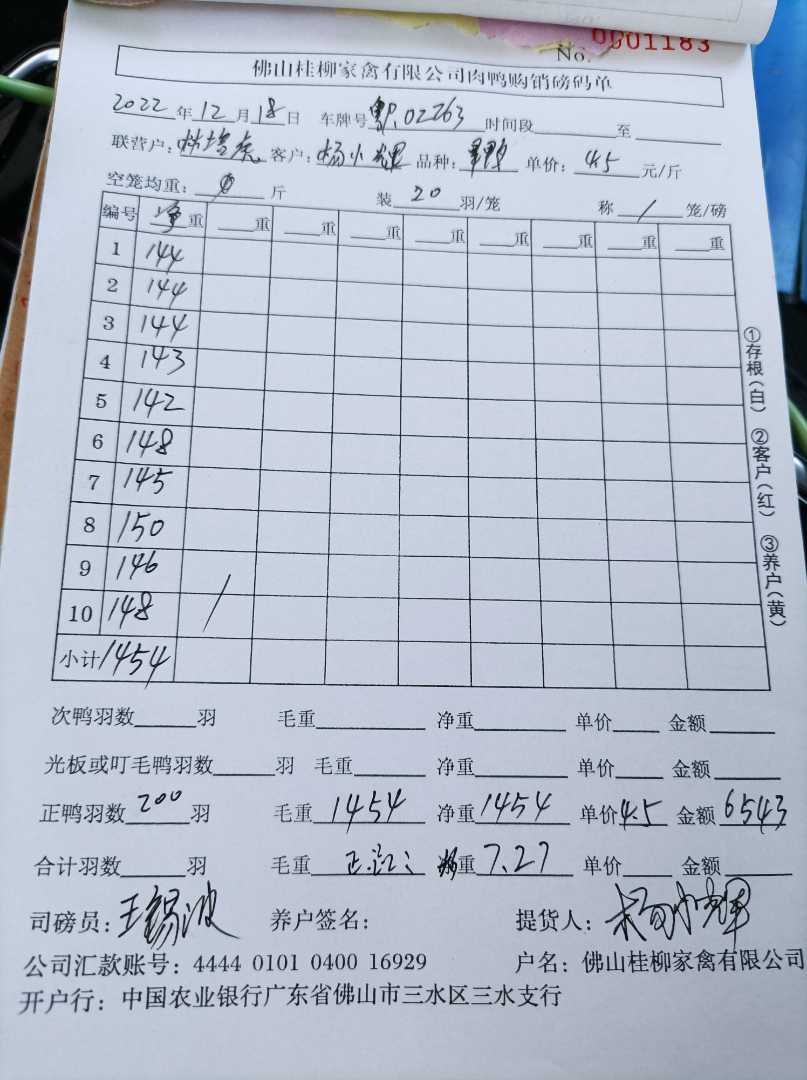 No. 0001183
佛山桂柳家禽有限公司肉鸭购销磅码单
2022年12月18日 车牌号 粤P.02763 时间段 至
联营户: 林培 客户: 杨小辉 品种: 单价: 4.5 元/斤
空笼均重: 0 斤 装 20 羽/笼 称 / 笼/磅
编号 净重 重 重 重 重 重 重 重 重
1 144
2 144
3 144
4 143
5 142
6 148
7 145
8 150
9 146
10 148 /
小计 1454
次鸭羽数 羽 毛重 净重 单价 金额
光板或叮毛鸭羽数 羽 毛重 净重 单价 金额
正鸭羽数 200 羽 毛重 1454 净重 1454 单价 4.5 金额 6543
合计羽数 羽 毛重 重 7.27 单价 金额
司磅员: 王锡波 养户签名: 提货人: 杨小辉
公司汇款账号: 4444 0101 0400 16929 户名: 佛山桂柳家禽有限公司
开户行: 中国农业银行广东省佛山市三水区三水支行
①存根(白) ②客户(红) ③养户(黄)